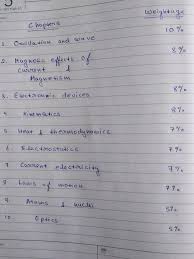 Chapters Weightage
1. Oscillation and wave 10%
2. Magnetic effects of 8%
current &
Magnetism
3. Electronic devices 8%
4. Kinematics 8%
5. Heat & thermodynamics 7%
6. Electrostatics 7%
7. Current electricity 7%
8. Laws of motion 7%
9. Atoms & nuclei 5%
10. Optics 5%